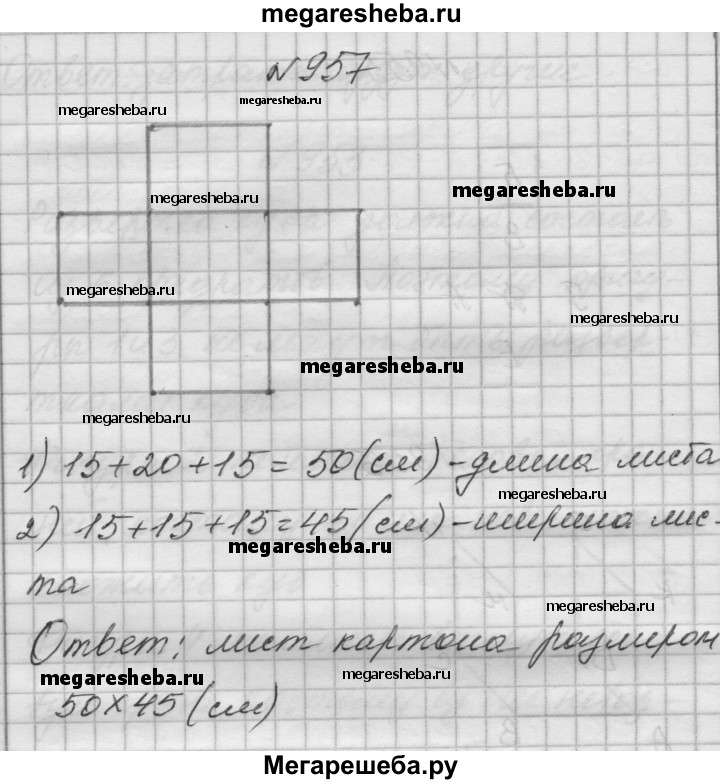 megaresheba.ru
№957
megaresheba.ru
megaresheba.ru
megaresheba.ru
megaresheba.ru
megaresheba.ru
megaresheba.ru
megaresheba.ru
megaresheba.ru
1) 15+20+15=50(см)-длина листа
megaresheba.ru
2) 15+15+15=45(см)-ширина лис-
megaresheba.ru
та
megaresheba.ru
Ответ: лист картона размером
megaresheba.ru
megaresheba.ru
50х45(см)
Мегарешеба.ру